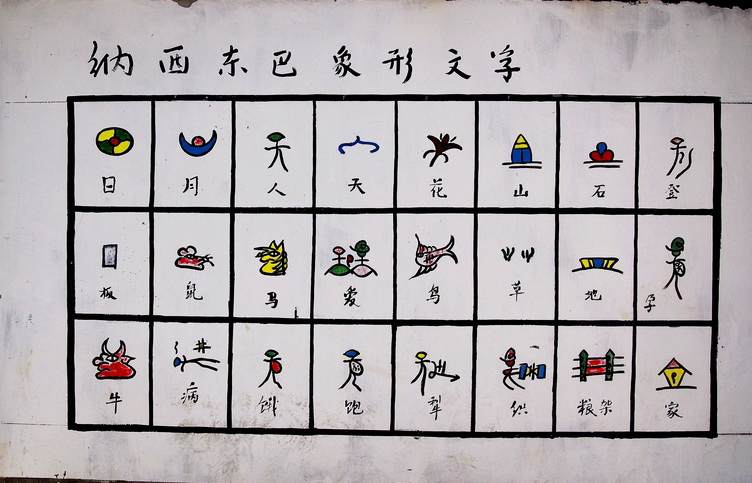 纳西东巴象形文字
日 月 人 天 花 山 石 登
板 鼠 马 爱 鸟 草 地 孕
牛 病 饿 饱 犁 织 粮架 家